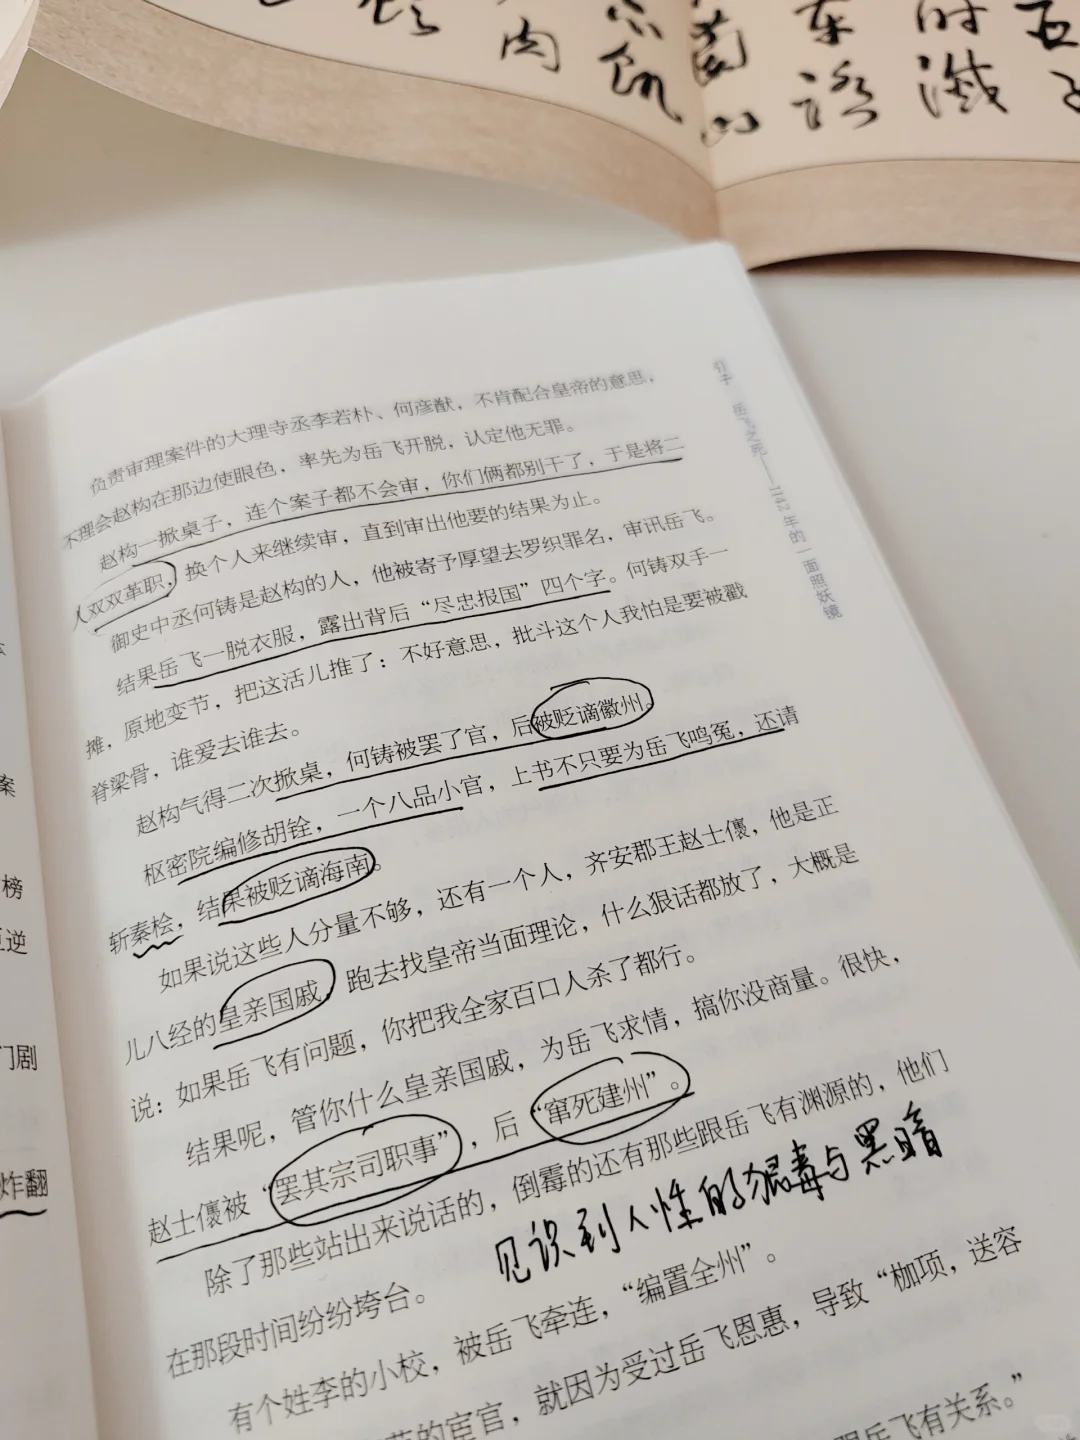 肉
饥
菌
东
谘
时
溅
五
引子 岳飞之死——1142年的一面照妖镜
负责审理案件的大理寺丞李若朴、何彦猷，不肯配合皇帝的意思，
不理会赵构在那边使眼色，率先为岳飞开脱，认定他无罪。
赵构一掀桌子，连个案子都不会审，你们俩都别干了，于是将二
人双双革职，换个人来继续审，直到审出他要的结果为止。
御史中丞何铸是赵构的人，他被寄予厚望去罗织罪名，审讯岳飞。
结果岳飞一脱衣服，露出背后“尽忠报国”四个字。何铸双手一
摊，原地变节，把这活儿推了：不好意思，批斗这个人我怕是要被戳
脊梁骨，谁爱去谁去。
赵构气得二次掀桌，何铸被罢了官，后被贬谪徽州。
枢密院编修胡铨，一个八品小官，上书不只要为岳飞鸣冤，还请
斩秦桧，结果被贬谪海南。
如果说这些人分量不够，还有一个人，齐安郡王赵士㒟，他是正
儿八经的皇亲国戚，跑去找皇帝当面理论，什么狠话都放了，大概是
说：如果岳飞有问题，你把我全家百口人杀了都行。
结果呢，管你什么皇亲国戚，为岳飞求情，搞你没商量。很快，
赵士㒟被“罢其宗司职事”，后“窜死建州”。
除了那些站出来说话的，倒霉的还有那些跟岳飞有渊源的，他们
在那段时间纷纷垮台。
见识到人性的狠毒与黑暗
有个姓李的小校，被岳飞牵连，“编置全州”。
的宦官，就因为受过岳飞恩惠，导致“枷项，送容
跟岳飞有关系。”
案
榜
逆
门剧
炸翻